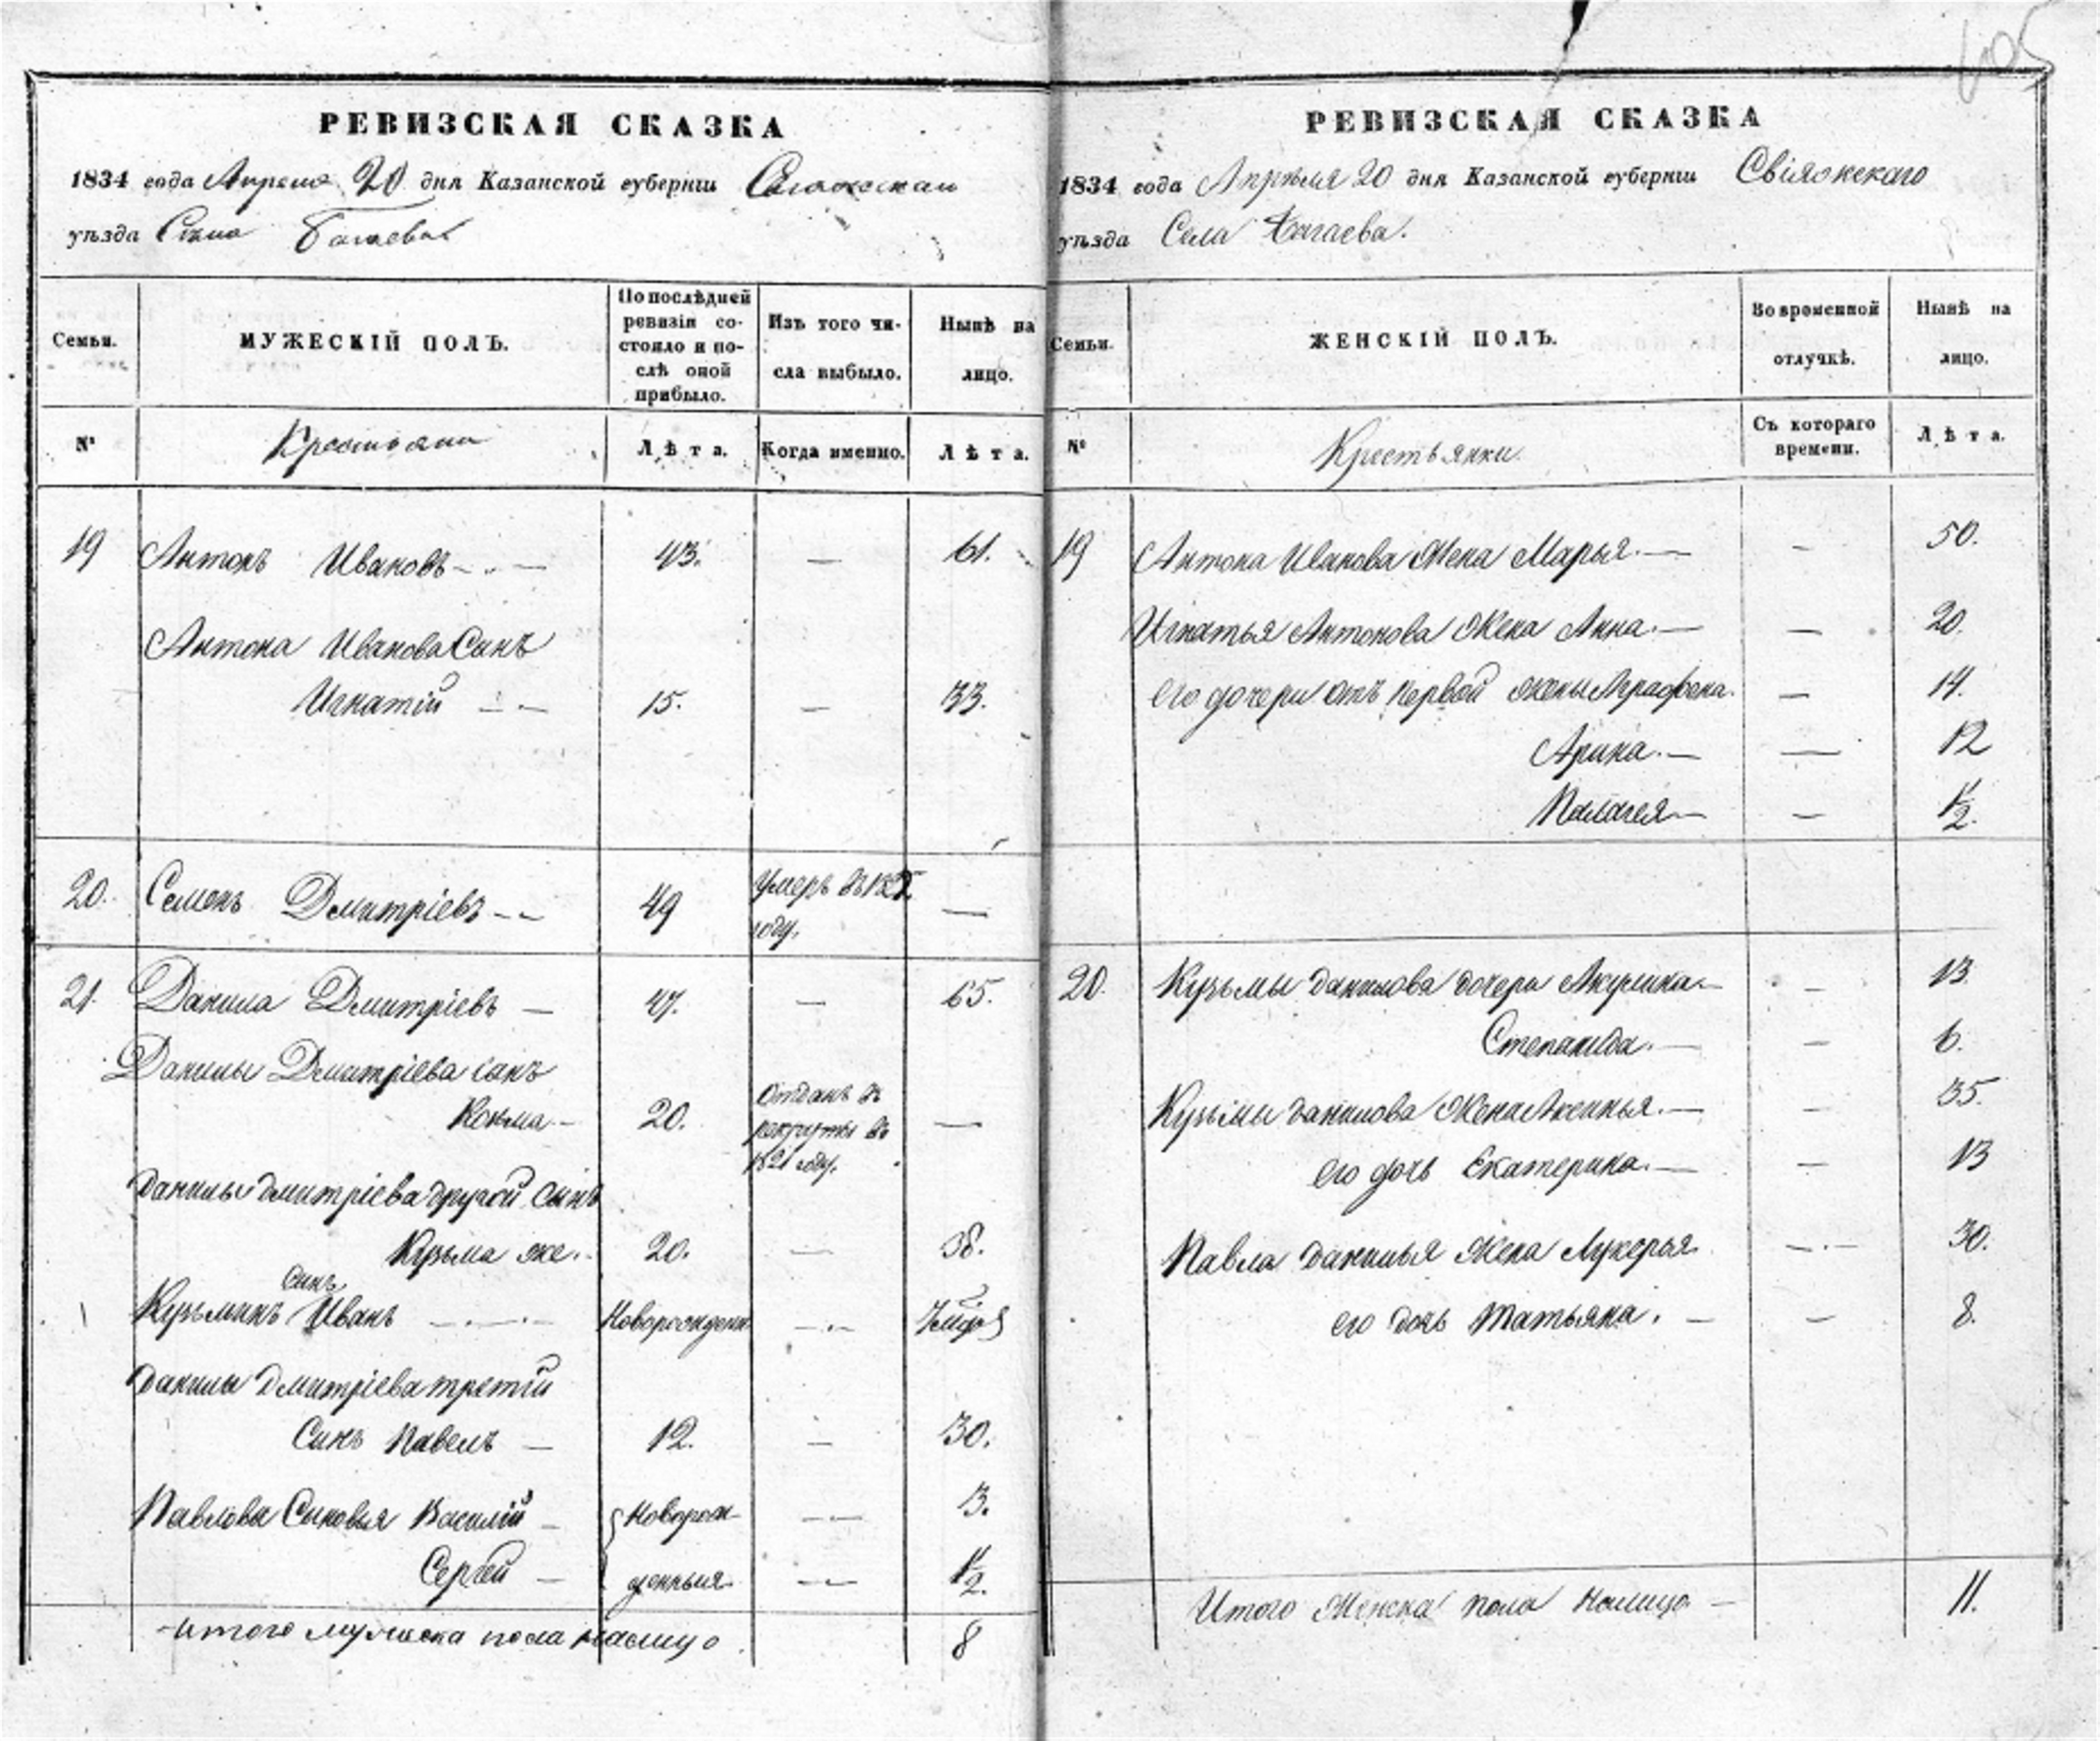 605
РЕВИЗСКАЯ СКАЗКА
1834 года Апреля 20 дня Казанской губерніи
уѣзда Села Багаева
Семьи.
МУЖЕСКІЙ ПОЛЪ.
По послѣдней ревизіи со-
стояло и по-
слѣ оной
прибыло.
Изъ того чи-
сла выбыло.
Нынѣ на
лицо.
№
Крестьяни
Лѣта.
Когда именно.
Лѣта.
19 Антонъ Ивановъ 43. — 61.
Антона Иванова Сынъ
Игнатій 15. — 33.
20. Семенъ Дмитріевъ 49 Умеръ въ году. —
21. Данила Дмитріевъ — 47. — 65.
Данилы Дмитріева сынъ
Козьма — 20. Отданъ въ
рекруты въ
1821 году. —
Данилы Дмитріева другой Сынъ
Кузьма же. 20. — 38.
Сынъ
Кузьминъ Иванъ Новорожден —
Данилы Дмитріева третій
Сынъ Павелъ — 12. — 30.
Павлова Сыновья Василій — Новорож- — 3.
Сергей — денныя — 1/2.
Итого мужеска пола налицо 8
РЕВИЗСКАЯ СКАЗКА
1834 года Апрѣля 20 дня Казанской губерніи Свіяжскаго
уѣзда Села Багаева.
Семьи.
ЖЕНСКІЙ ПОЛЪ.
Во временной
отлучкѣ.
Нынѣ на
лицо.
№
Крестьянки
Съ котораго
времени.
Лѣта.
19 Антона Иванова Жена Марья. — — 50.
Игнатья Антонова Жена Анна. — — 20.
его дочери отъ первой жены Аграфена. — 14.
Арина. — — 12
Палагея — — 1/2.
20. Кузьмы Данилова дочери Акулина — — 13.
Степанида. — — 6.
Кузьмы Данилова Жена Аксинья. — — 35.
его дочь Екатерина. — — 13
Павла Данилья Жена Лукерья — 30.
его дочь Татьяна. — — 8.
Итого Женска пола налицо — 11.